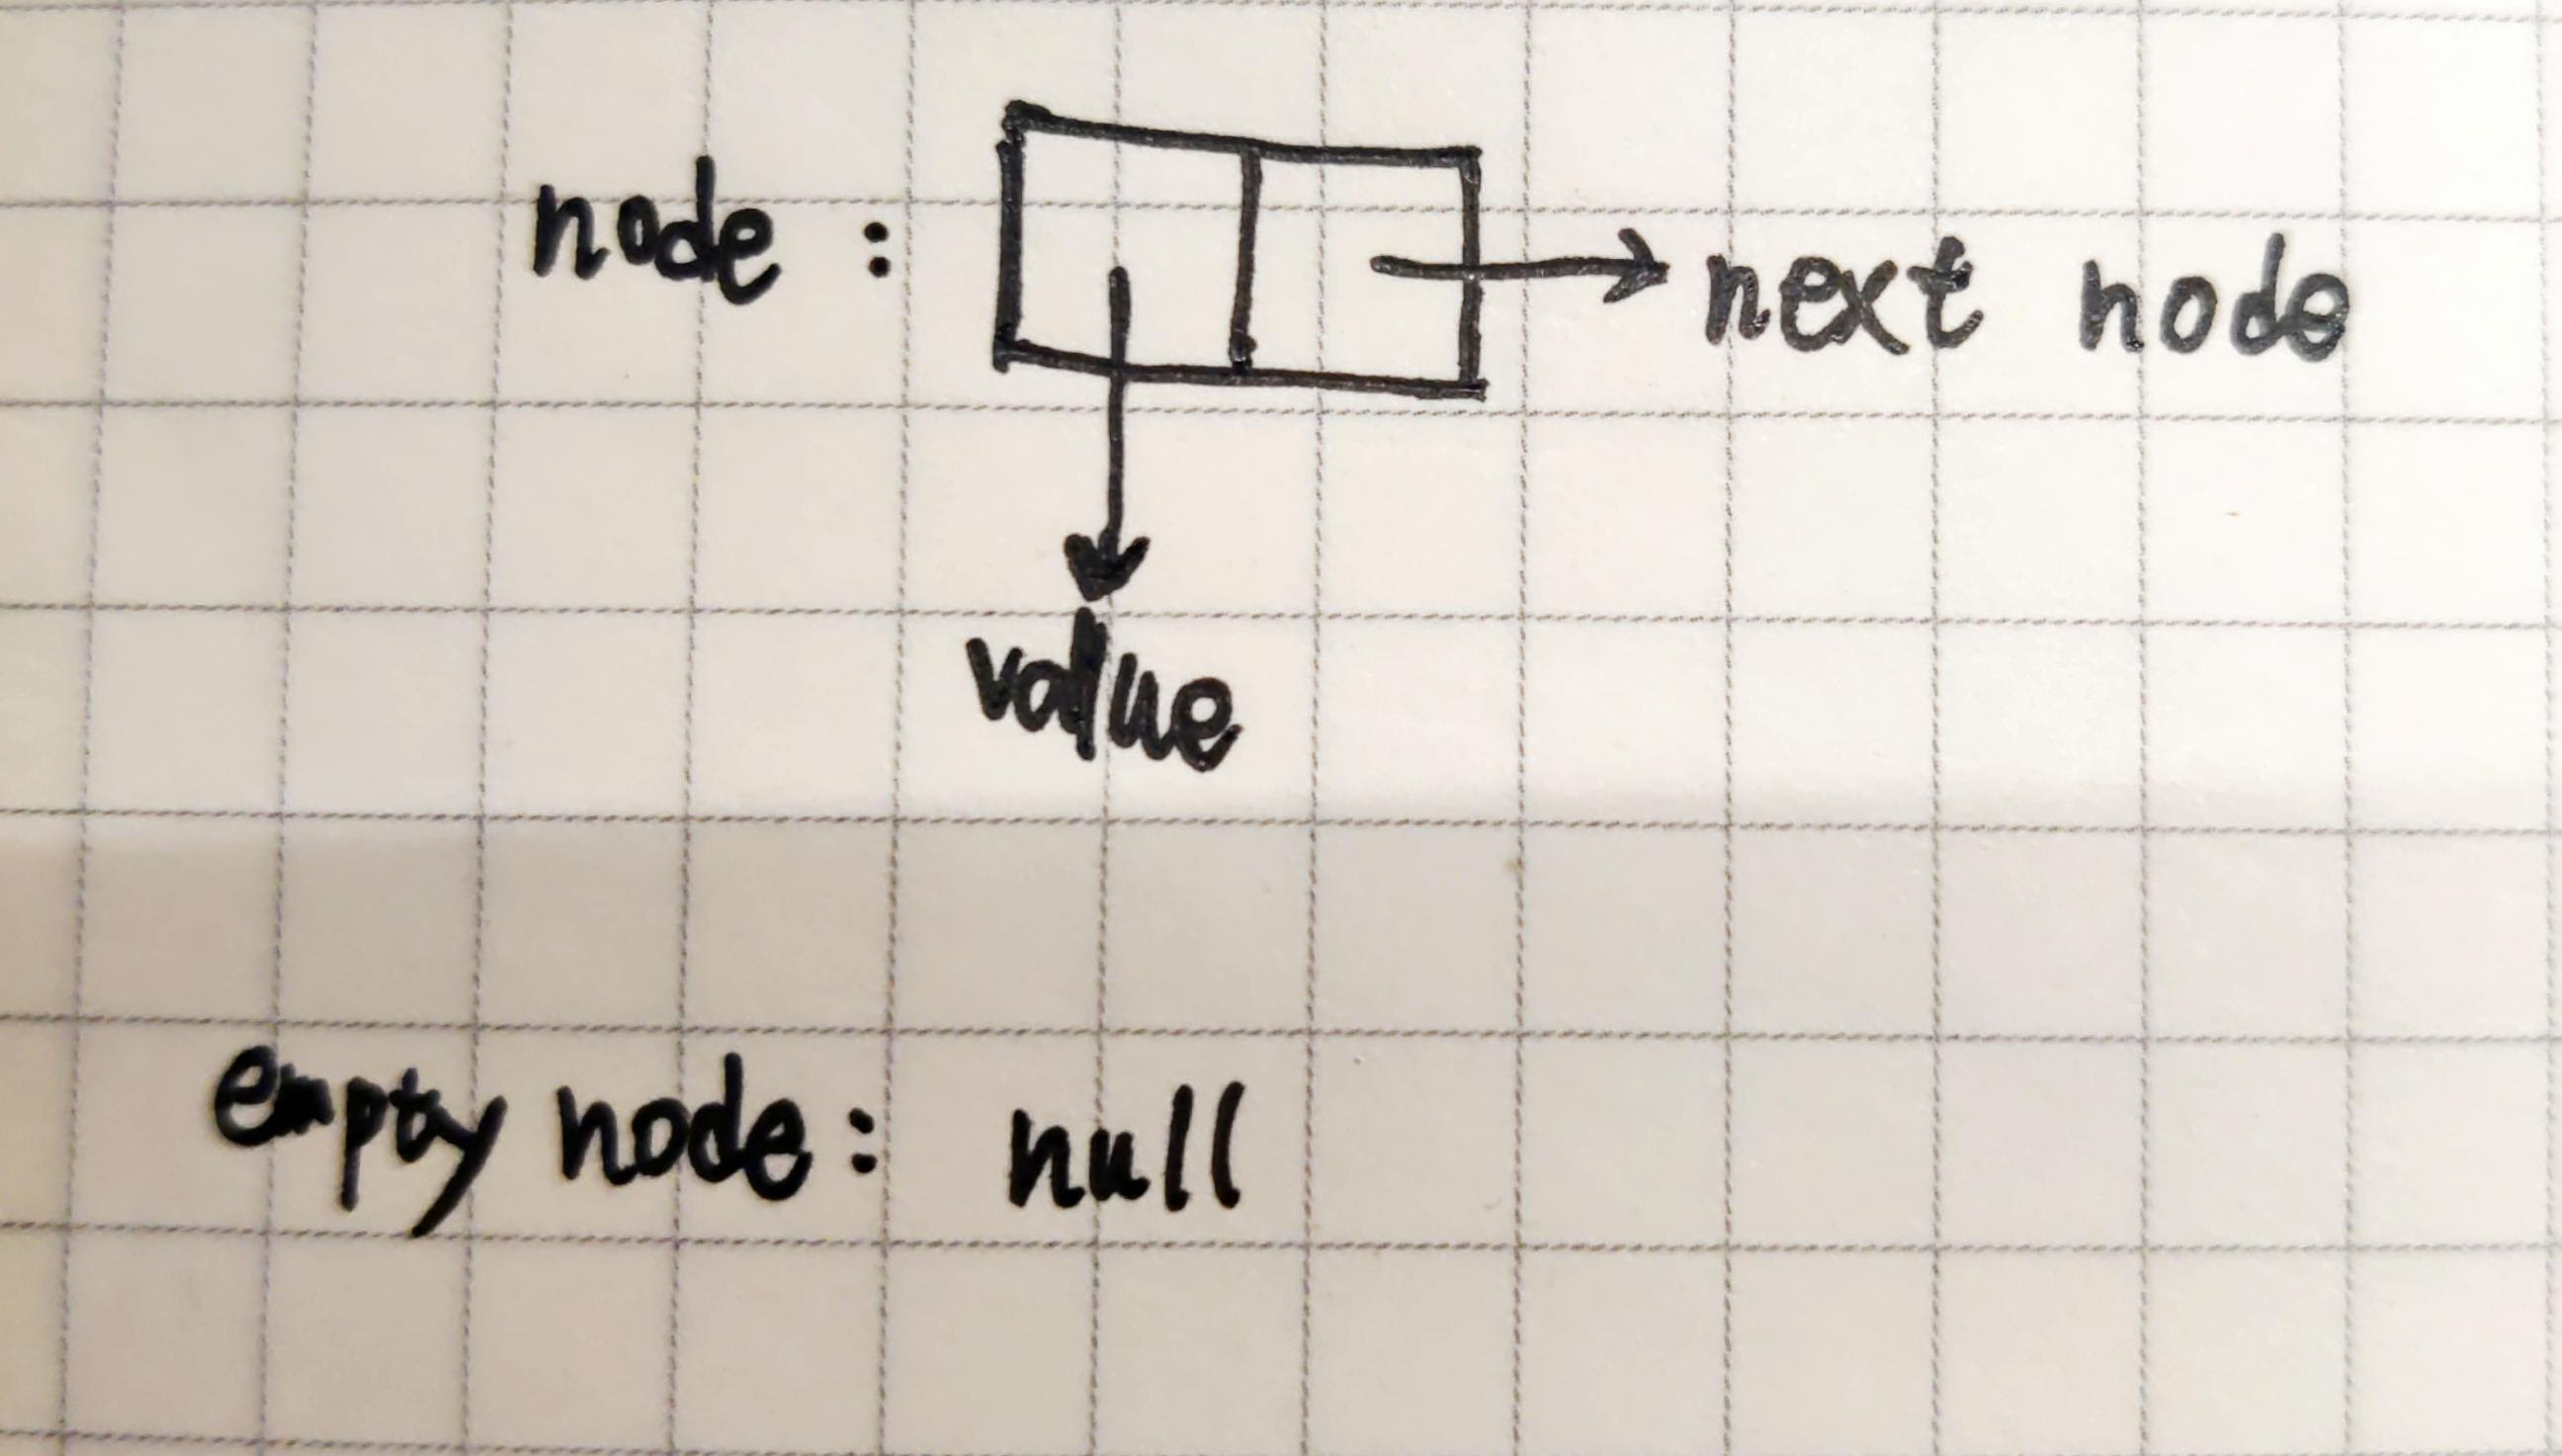 node : next node
value
empty node: null